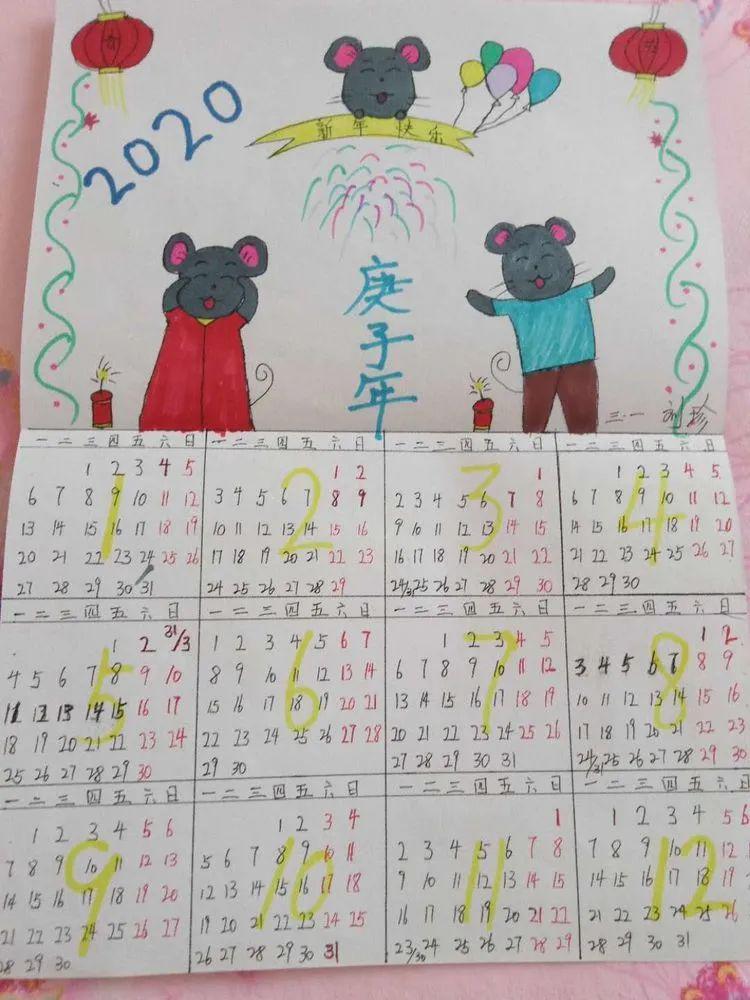 2020
新年快乐
庚子年
三·一 刘珍
1
一 二 三 四 五 六 日
1 2 3 4 5
6 7 8 9 10 11 12
13 14 15 16 17 18 19
20 21 22 23 24 25 26
27 28 29 30 31
2
一 二 三 四 五 六 日
1 2
3 4 5 6 7 8 9
10 11 12 13 14 15 16
17 18 19 20 21 22 23
24 25 26 27 28 29
3
一 二 三 四 五 六 日
1
2 3 4 5 6 7 8
9 10 11 12 13 14 15
16 17 18 19 20 21 22
24/31 25 26 27 28 29 30
4
一 二 三 四 五 六 日
1 2 3 4 5
6 7 8 9 10 11 12
14 15 16 17 18 19 20
21 22 23 24 25 26 27
28 29 30
5
一 二 三 四 五 六 日
1 2 31/3
4 5 6 7 8 9 10
11 12 13 14 15 16 17
18 19 20 21 22 23 24
25 26 27 28 29 30
6
一 二 三 四 五 六 日
1 2 3 4 5 6 7
8 9 10 11 12 13 14
15 16 17 18 19 20 21
22 23 24 25 26 27 28
29 30
7
一 二 三 四 五 六 日
1 2 3 4 5
6 7 8 9 10 11 12
13 14 15 16 17 18 19
20 21 22 23 24 25 26
27 28 29 30 31
8
一 二 三 四 五 六 日
1 2
3 4 5 6 7 8 9
10 11 12 13 14 15 16
17 18 19 20 21 22 23
24/31 25 26 27 28 29 30
9
一 二 三 四 五 六 日
1 2 3 4 5 6
7 8 9 10 11 12 13
14 15 16 17 18 19 20
21 22 23 24 25 26 27
28 29 30
10
一 二 三 四 五 六 日
1 2 3 4
5 6 7 8 9 10 11
12 13 14 15 16 17 18
19 20 21 22 23 24 25
26 27 28 29 30 31
11
一 二 三 四 五 六 日
1
2 3 4 5 6 7 8
9 10 11 12 13 14 15
16 17 18 19 20 21 22
23/30 24 25 26 27 28 29
12
一 二 三 四 五 六 日
1 2 3 4 5 6
7 8 9 10 11 12
14 15 16 17 18 19
21 22 23 24 25 26
28 29 30 31